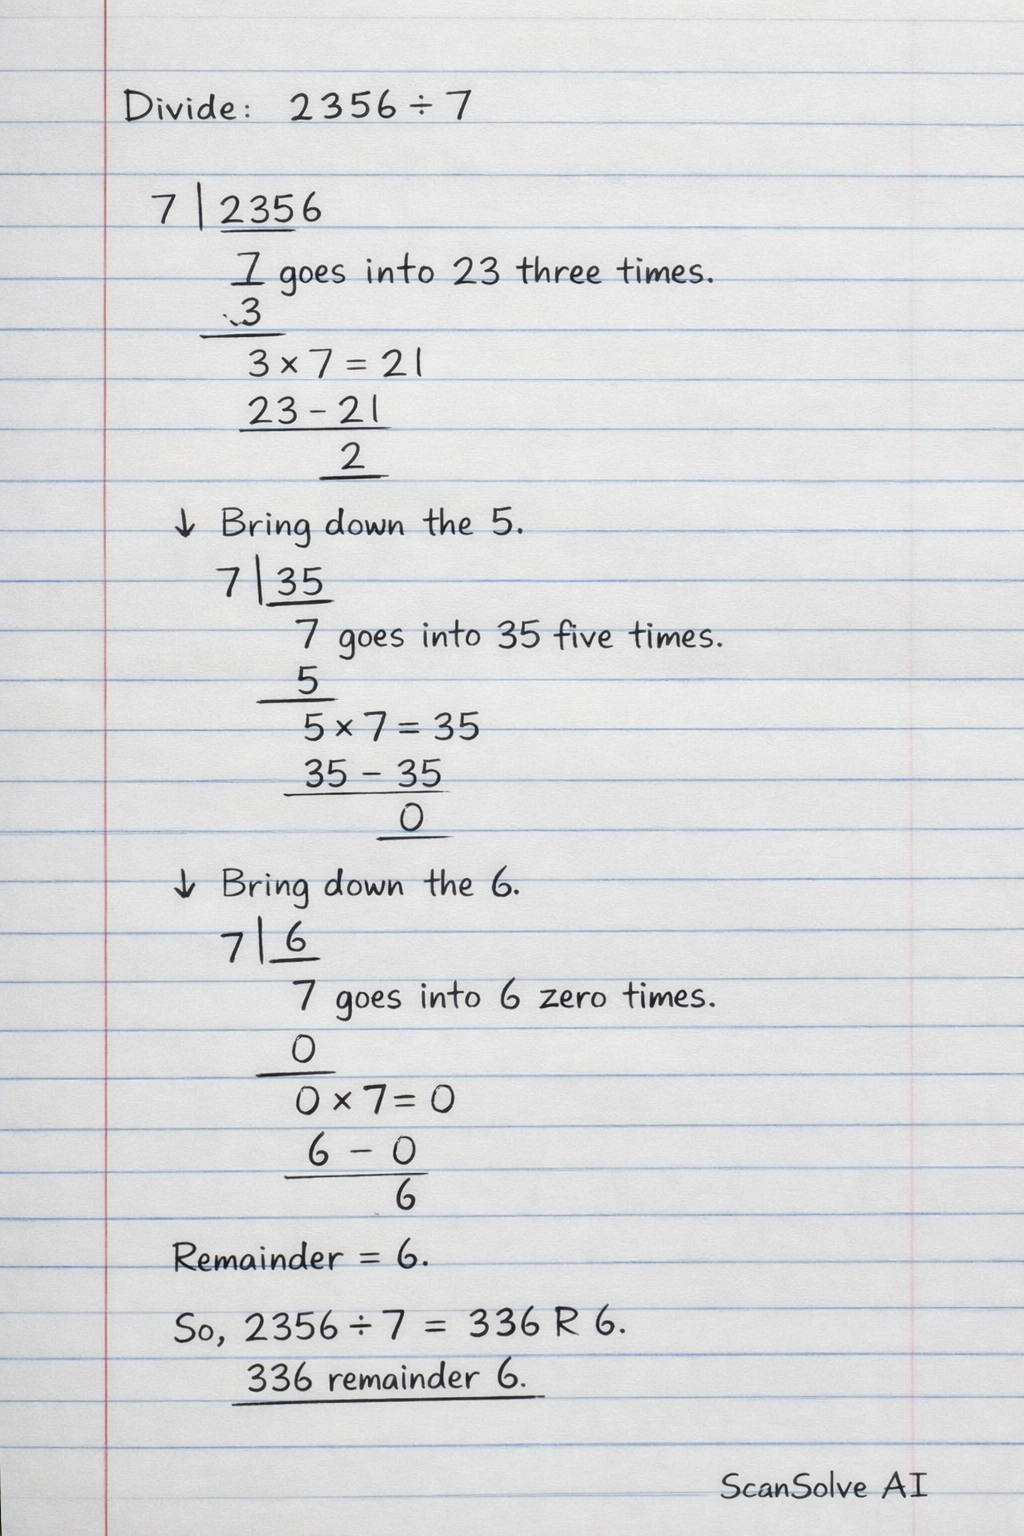 Divide: 2356 ÷ 7
7 | 2356
7 goes into 23 three times.
3
3 × 7 = 21
23 - 21
2
↓ Bring down the 5.
7 | 35
7 goes into 35 five times.
5
5 × 7 = 35
35 - 35
0
↓ Bring down the 6.
7 | 6
7 goes into 6 zero times.
0
0 × 7 = 0
6 - 0
6
Remainder = 6.
So, 2356 ÷ 7 = 336 R 6.
336 remainder 6.
ScanSolve AI